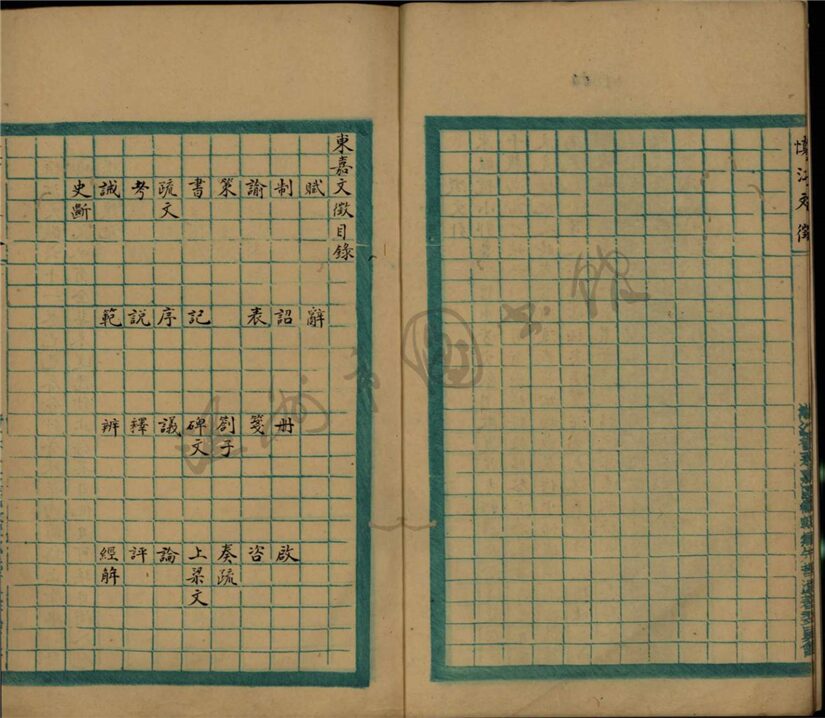 慎江文徵
東嘉文徵目錄
賦 辭
制 詔 册 啟
諭 表 箋 咨
策 劄子 奏疏
書 記 碑文 上梁文
疏文 序 議 論
考 說 釋 評
誡 範 辨 經解
史斷